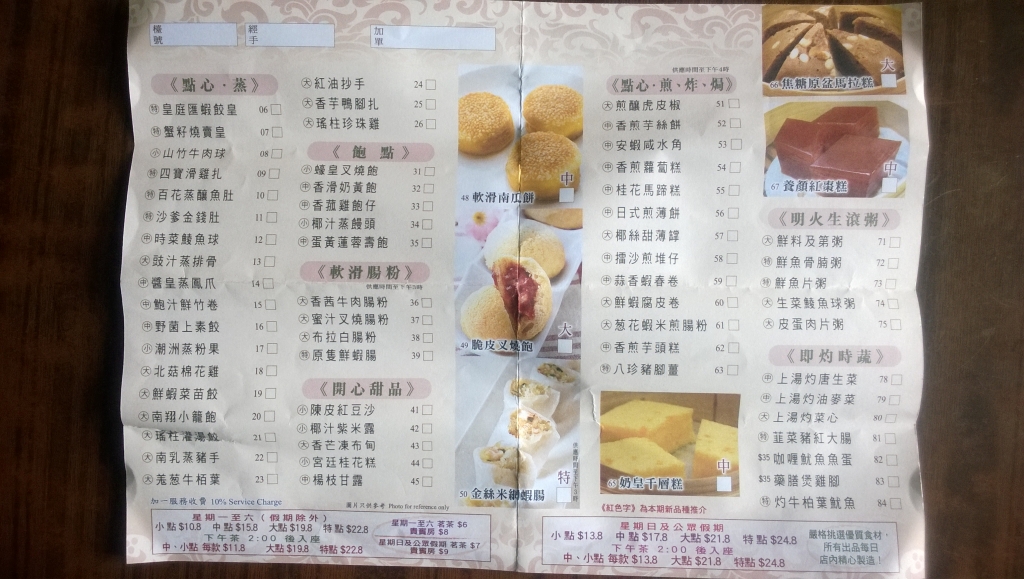 檯號
經手
加單
《點心·蒸》
特 皇庭匯蝦餃皇 06
特 蟹籽燒賣皇 07
小 山竹牛肉球 08
特 四寶滑雞扎 09
特 百花蒸釀魚肚 10
特 沙爹金錢肚 11
中 時菜鯪魚球 12
大 豉汁蒸排骨 13
中 醬皇蒸鳳爪 14
中 鮑汁鮮竹卷 15
中 野菌上素餃 16
小 潮洲蒸粉果 17
大 北菇棉花雞 18
大 鮮蝦菜苗餃 19
大 南翔小籠飽 20
大 瑤柱灌湯餃 21
大 南乳蒸豬手 22
大 羗葱牛栢葉 23
大 紅油抄手 24
大 香芋鴨腳扎 25
大 瑤柱珍珠雞 26
《飽點》
小 蠔皇叉燒飽 31
中 香滑奶黃飽 32
中 香菰雞飽仔 33
小 椰汁蒸饅頭 34
中 蛋黃蓮蓉壽飽 35
《軟滑腸粉》
供應時間至下午5時
大 香茜牛肉腸粉 36
大 蜜汁叉燒腸粉 37
大 布拉白腸粉 38
特 原隻鮮蝦腸 39
《開心甜品》
小 陳皮紅豆沙 41
小 椰汁紫米露 42
大 香芒凍布甸 43
小 宮廷桂花糕 44
中 楊枝甘露 45
加一服務收費 10% Service Charge
圖片只供參考 Photo for reference only
星期一至六(假期除外)
小點$10.8 中點$15.8 大點$19.8 特點$22.8
下午茶 2:00 後入座
中、小點 每款$11.8 大點$19.8 特點$22.8
星期一至六 茗茶 $6
貴賓房 $8
星期日及公眾假期 茗茶 $7
貴賓房 $9
48 軟滑南瓜餅 中
49 脆皮叉燒飽 大
50 金絲米網蝦腸 特
供應時間至下午5時
供應時間至下午4時
《點心·煎、炸、焗》
大 煎釀虎皮椒 51
中 香煎芋絲餅 52
中 安蝦咸水角 53
中 香煎蘿蔔糕 54
中 桂花馬蹄糕 55
中 日式煎薄餅 56
大 椰絲甜薄罉 57
中 擂沙煎堆仔 58
中 蒜香蝦春卷 59
大 鮮蝦腐皮卷 60
大 葱花蝦米煎腸粉 61
中 香煎芋頭糕 62
特 八珍豬腳薑 63
65 奶皇千層糕 中
《紅色字》為本期新品種推介
66 焦糖原盆馬拉糕 大
67 養顏紅棗糕 中
《明火生滾粥》
大 鮮料及第粥 71
特 鮮魚骨腩粥 72
特 鮮魚片粥 73
大 生菜鯪魚球粥 74
大 皮蛋肉片粥 75
《即灼時蔬》
中 上湯灼唐生菜 78
中 上湯灼油麥菜 79
大 上湯灼菜心 80
特 韮菜豬紅大腸 81
$35 咖喱魷魚魚蛋 82
$35 藥膳煲雞腳 83
特 灼牛柏葉魷魚 84
星期日及公眾假期
小點 $13.8 中點 $17.8 大點$21.8 特點 $24.8
下午茶 2:00 後入座
中、小點 每款 $13.8 大點 $21.8 特點 $24.8
嚴格挑選優質食材,
所有出品每日
店內精心製造!